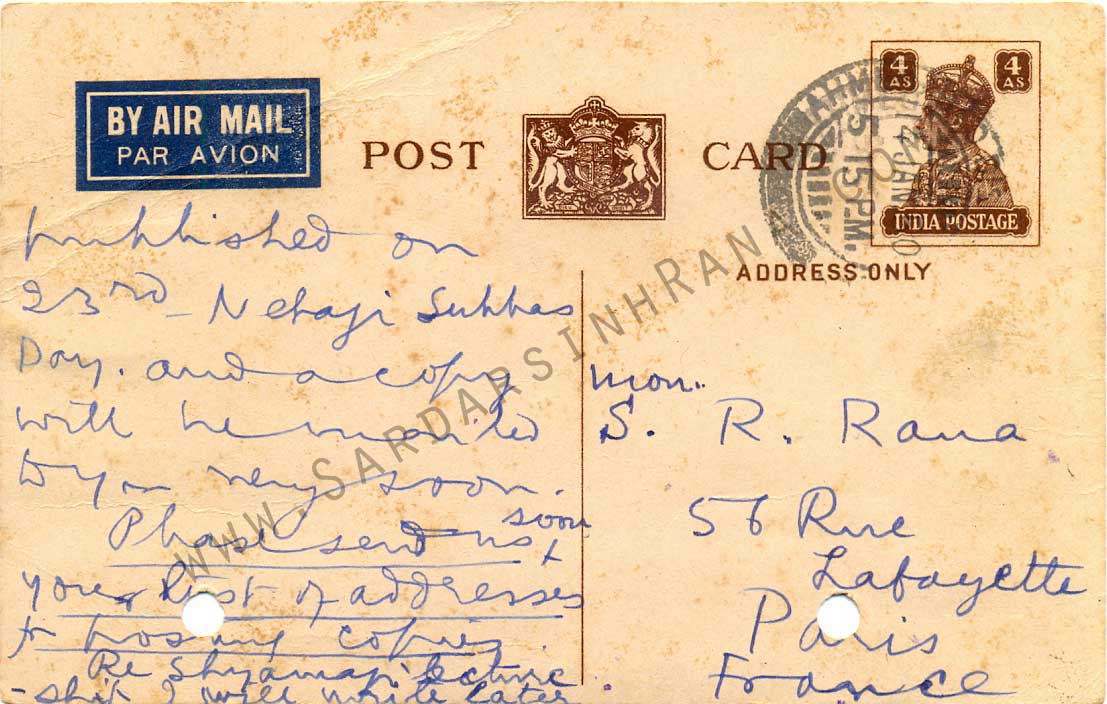 BY AIR MAIL
PAR AVION
POST CARD
4 AS 4 AS
INDIA POSTAGE
ADDRESS ONLY
AHM
5 15 P.M.
JAN
published on
23rd - Netaji Subhas
Day. and a copy
will be mailed
to you very soon.
Please send us soon
your list of addresses
for posting copies
Re Shyamaji lecture
-ship I will write later
Mon.
S. R. Rana
56 Rue
Lafayette
Paris
France
WWW.SARDARSINHRANA